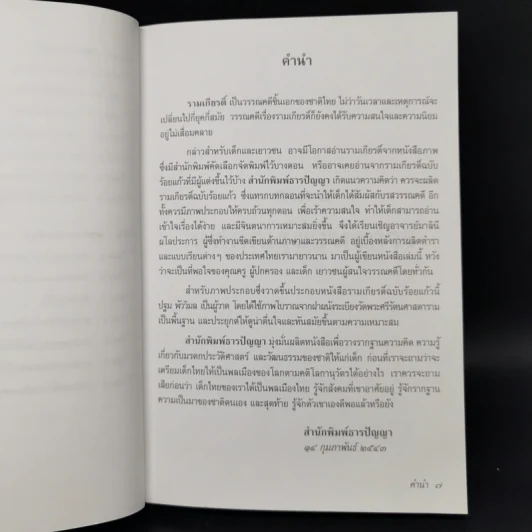 คำนำ
รามเกียรติ์ เป็นวรรณคดีชิ้นเอกของชาติไทย ไม่ว่าวันเวลาและเหตุการณ์จะ
เปลี่ยนไปกี่ยุคกี่สมัย วรรณคดีเรื่องรามเกียรติ์ก็ยังคงได้รับความสนใจและความนิยม
อยู่ไม่เสื่อมคลาย
กล่าวสำหรับเด็กและเยาวชน อาจมีโอกาสอ่านรามเกียรติ์จากหนังสือภาพ
ซึ่งมีสำนักพิมพ์คัดเลือกจัดพิมพ์ไว้บางตอน หรืออาจเคยอ่านจากรามเกียรติ์ฉบับ
ร้อยแก้วที่มีผู้แต่งขึ้นไว้บ้าง สำนักพิมพ์ธารปัญญา เกิดแนวความคิดว่า ควรจะผลิต
รามเกียรติ์ฉบับร้อยแก้ว ซึ่งแทรกบทกลอนที่จะนำให้เด็กได้สัมผัสกับรสวรรณคดี อีก
ทั้งควรมีภาพประกอบให้ครบถ้วนทุกตอน เพื่อเร้าความสนใจ ทำให้เด็กสามารถอ่าน
เข้าเรื่องได้ง่าย และมีจินตนาการเหมาะสมยิ่งขึ้น จึงได้เรียนเชิญอาจารย์มาลินี
ผโลประการ ผู้ซึ่งทำงานขีดเขียนด้านภาษาและวรรณคดี อยู่เบื้องหลังการผลิตตำรา
และแบบเรียนต่างๆ ของประเทศไทยเรามายาวนาน มาเป็นผู้เขียนหนังสือเล่มนี้ หวัง
ว่าจะเป็นที่พอใจของคุณครู ผู้ปกครอง และเด็ก เยาวชนผู้สนใจวรรณคดีโดยทั่วกัน
สำหรับภาพประกอบซึ่งวาดขึ้นประกอบหนังสือรามเกียรติ์ฉบับร้อยแก้วนี้
ปฐม พัวพิมล เป็นผู้วาด โดยได้ใช้ภาพโบราณจากฝาผนังระเบียงวัดพระศรีรัตนศาสดาราม
เป็นพื้นฐาน และประยุกต์ให้ดูน่าตื่นและทันสมัยขึ้นตามความเหมาะสม
สำนักพิมพ์ธารปัญญา มุ่งมั่นผลิตหนังสือเพื่อวางรากฐานความคิด ความรู้
เกี่ยวกับมรดกประวัติศาสตร์ และวัฒนธรรมของชาติให้แก่เด็ก ก่อนที่เราจะถามว่าจะ
เตรียมเด็กไทยให้เป็นพลเมืองของโลกตามคติโลกานุวัตรได้อย่างไร เราควรจะถาม
เสียก่อนว่า เด็กไทยของเราได้เป็นพลเมืองไทย รู้จักสังคมที่เขาอาศัยอยู่ รู้จักรากฐาน
ความเป็นมาของชาติตนเอง และสุดท้าย รู้จักตัวเขาเองดีพอแล้วหรือยัง
สำนักพิมพ์ธารปัญญา
๑๔ กุมภาพันธ์ ๒๕๔๓
คำนำ ๗